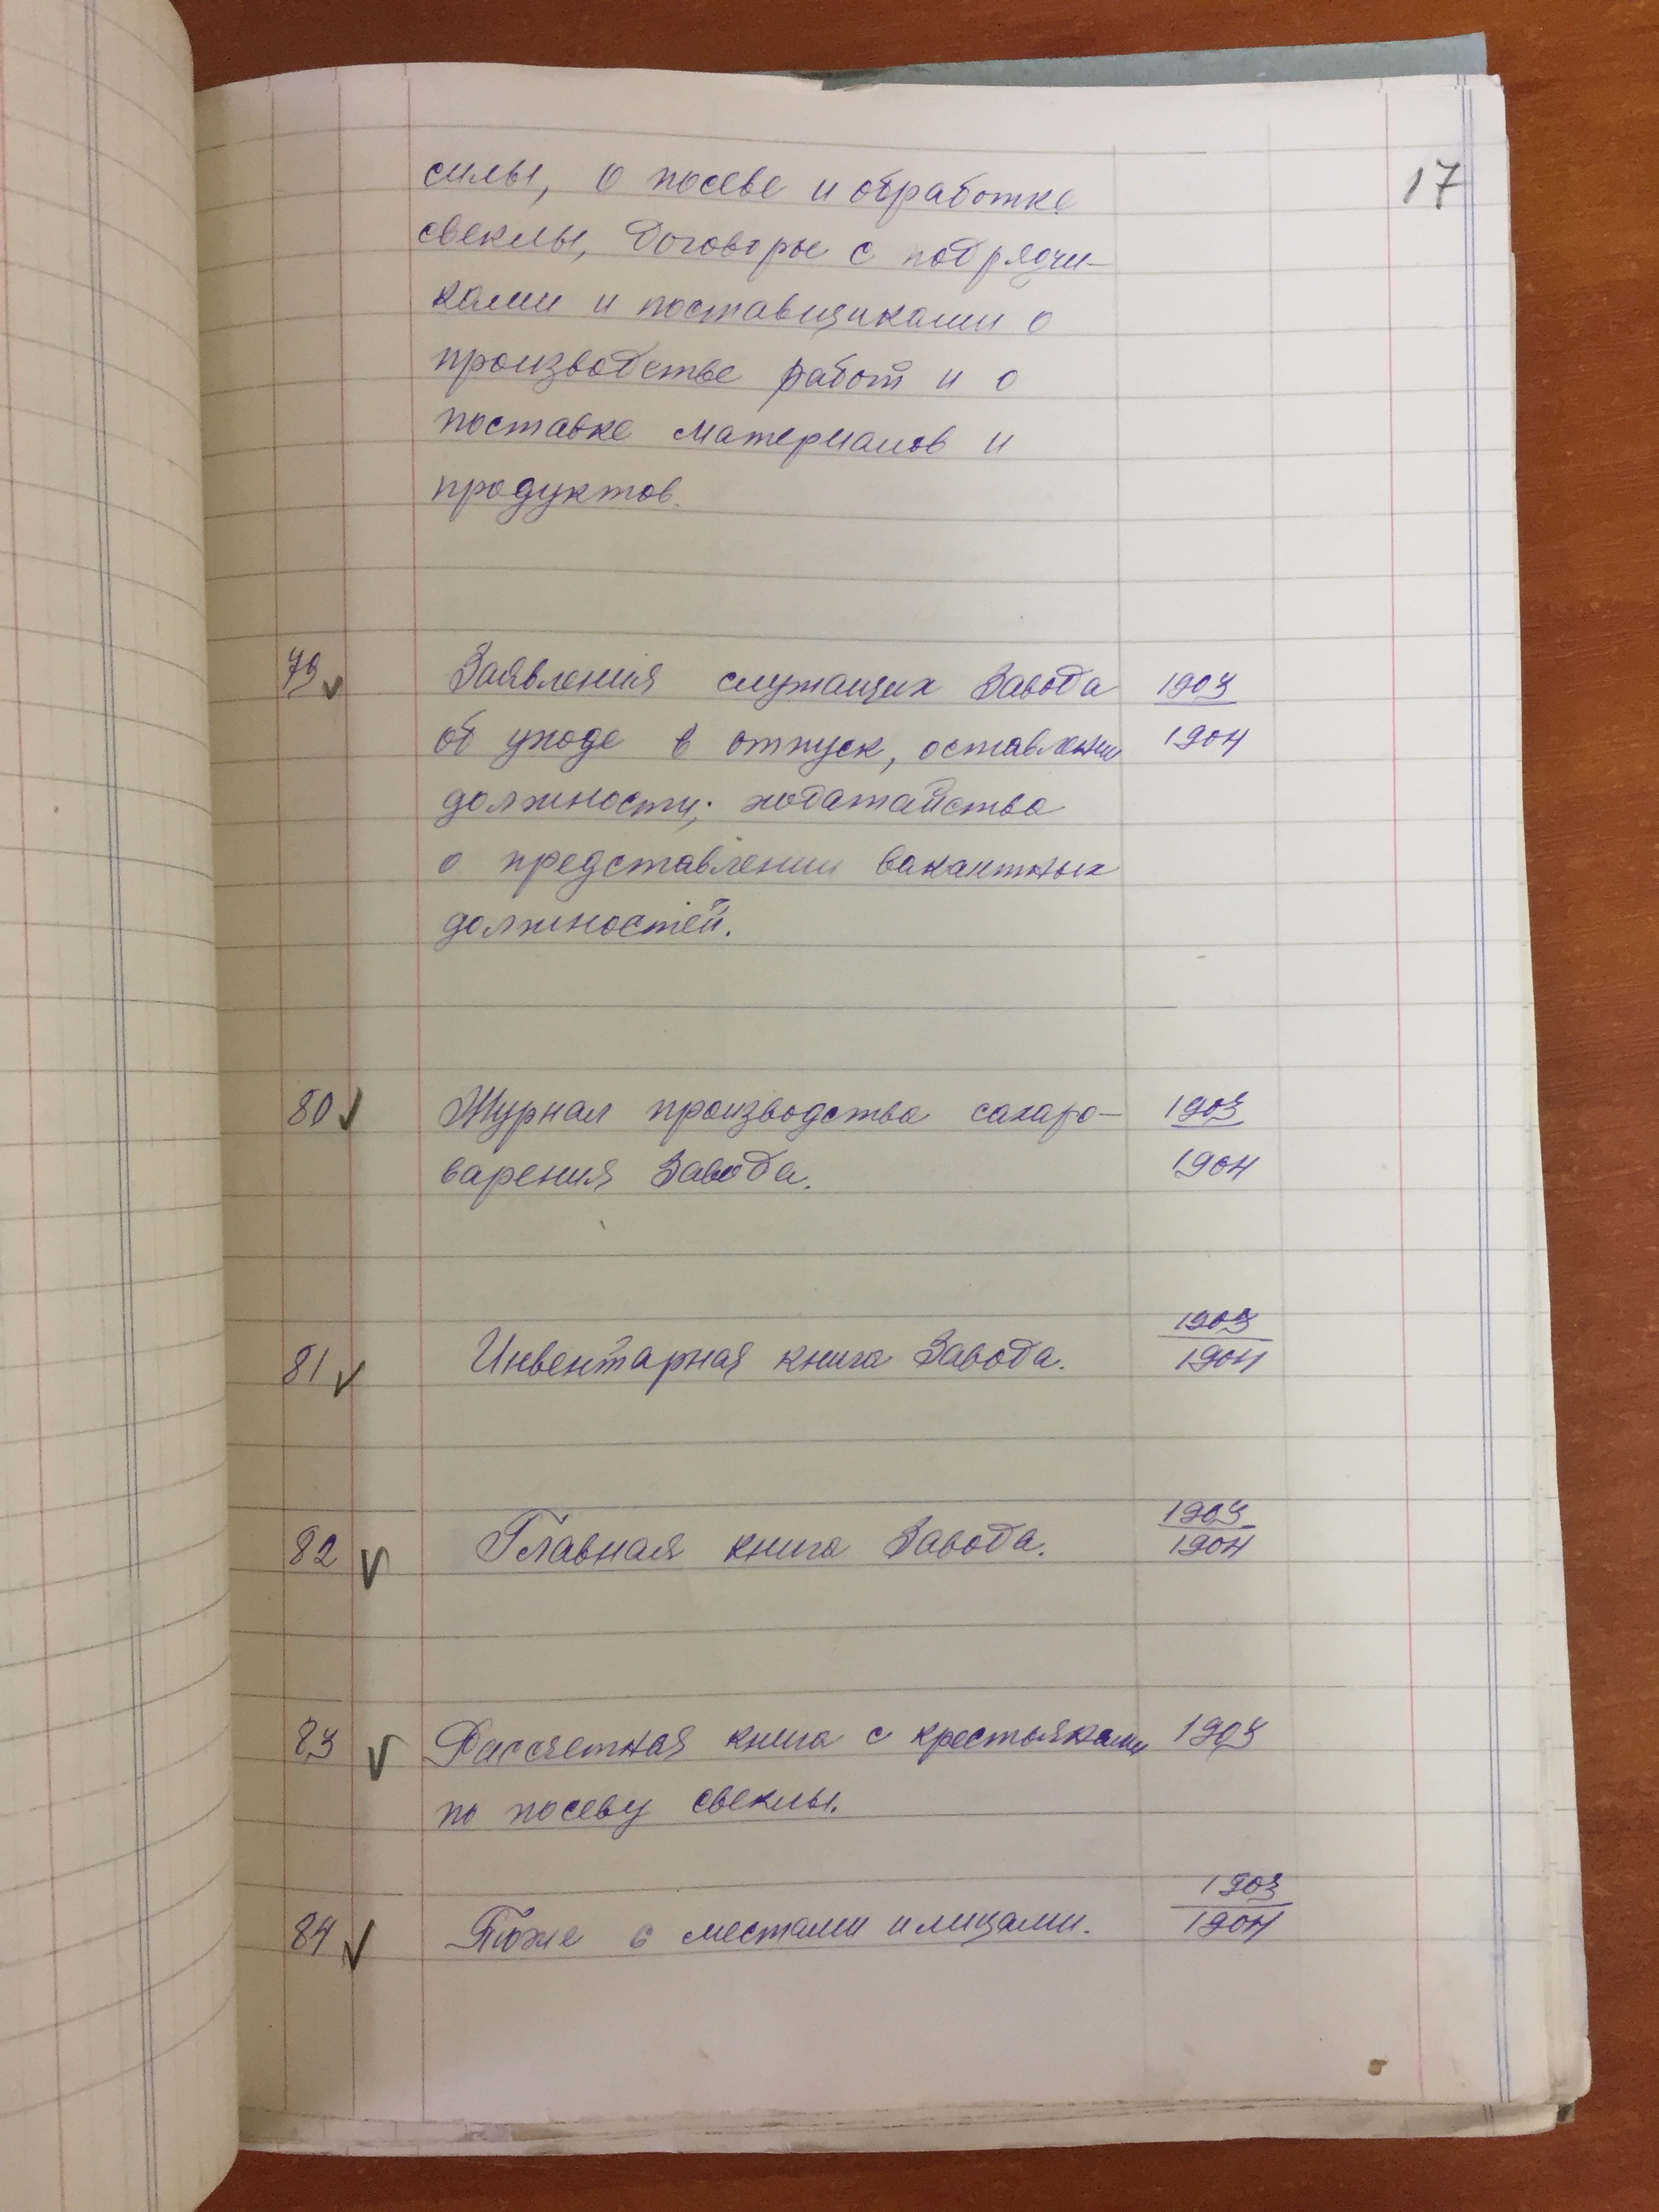 17
силы, о посеве и обработке
свеклы, договоры с подрядчи-
ками и поставщиками о
производстве работ и о
поставке материалов и
продуктов.
79 Заявления служащих завода 1903
об уходе в отпуск, оставлении 1904
должности; ходатайства
о представлении вакантных
должностей.
80 Журнал производства сахаро- 1903
варения завода. 1904
1903
81 Инвентарная книга завода. 1904
1903
82 Главная книга завода. 1904
83 Рассчетная книга с крестьянами 1903
по посеву свеклы.
1903
84 Тоже с местами и лицами. 1904